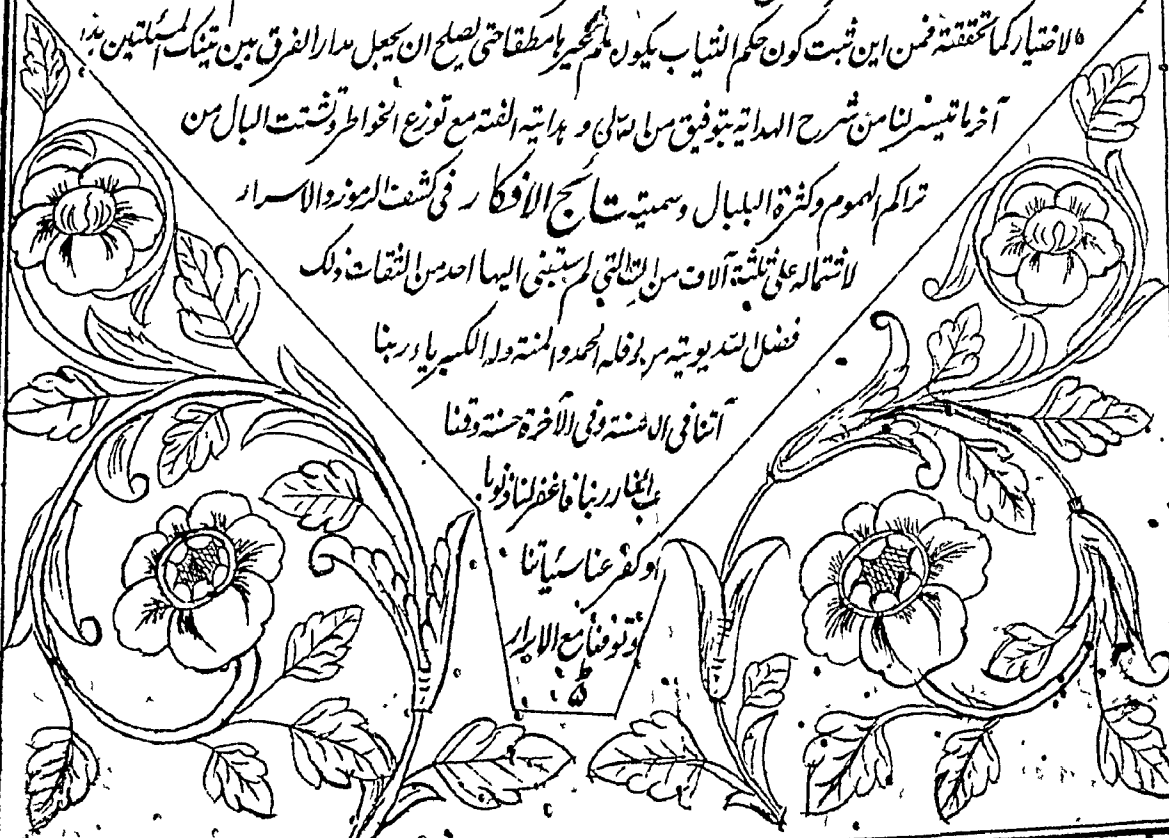 الاختيار كما تحققته فمن اين ثبت كون حكم الثياب يكون ملم الحمير بامطلقا حتى يصلح ان يجعل مدار الفرق بين تينك المسئلتين هذا
آخر ما تيسر لنا من شرح الهداية بتوفيق من الله تعالى وهدايته الفتة مع توزع الخواطر وتشتت البال من
تراكم الهموم وكثرة البلبال وسميته نتائج الافكار في كشف الرموز والاسرار
لاشتماله على ثلثة آلاف من التى لم يسبقنى اليها احد من الثقات ذلك
فضل الله يوتيه من فله الحمد والمنة وله الكبرياء ربنا
آتنا فى حسنة وفى الآخرة حسنة وقنا
عذاب النار ربنا فاغفر لنا ذنوبنا
وكفر عنا سيئاتنا
وتوفنا مع الابرار